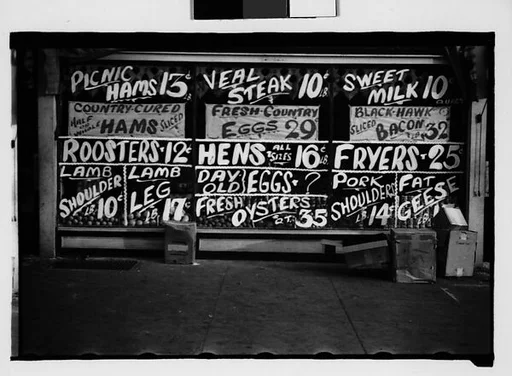 PICNIC HAMS 15¢ LB.
VEAL STEAK 10¢ LB.
SWEET MILK 10¢
COUNTRY-CURED
HALF HAMS SLICED
FRESH-COUNTRY
EGGS 29
BLACK-HAWK
SLICED BACON 32
ROOSTERS-12¢
HENS ALL SIZES 16¢ LB.
FRYERS-25¢
LAMB SHOULDER LB. 10¢
LAMB LEG LB. 17¢
DAY OLD EGGS-?
FRESH OYSTERS QT. 35
PORK SHOULDERS LB. 14¢
FAT GEESE LB.